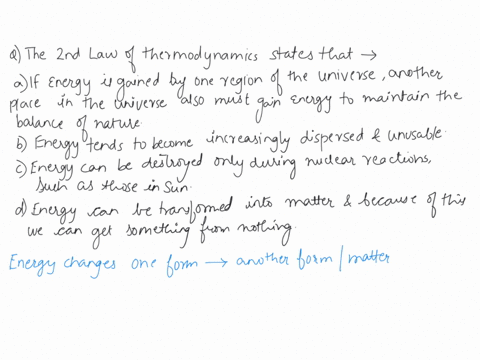 Q) The 2nd Law of thermodynamics states that →
a) If Energy is gained by one region of the universe, another
place in the universe also must gain energy to maintain the
balance of nature.
b) Energy tends to become increasingly dispersed & unusable.
c) Energy can be destroyed only during nuclear reactions,
such as those in Sun.
d) Energy can be transformed into matter & because of this
we can get something from nothing.
Energy changes one form → another form / matter